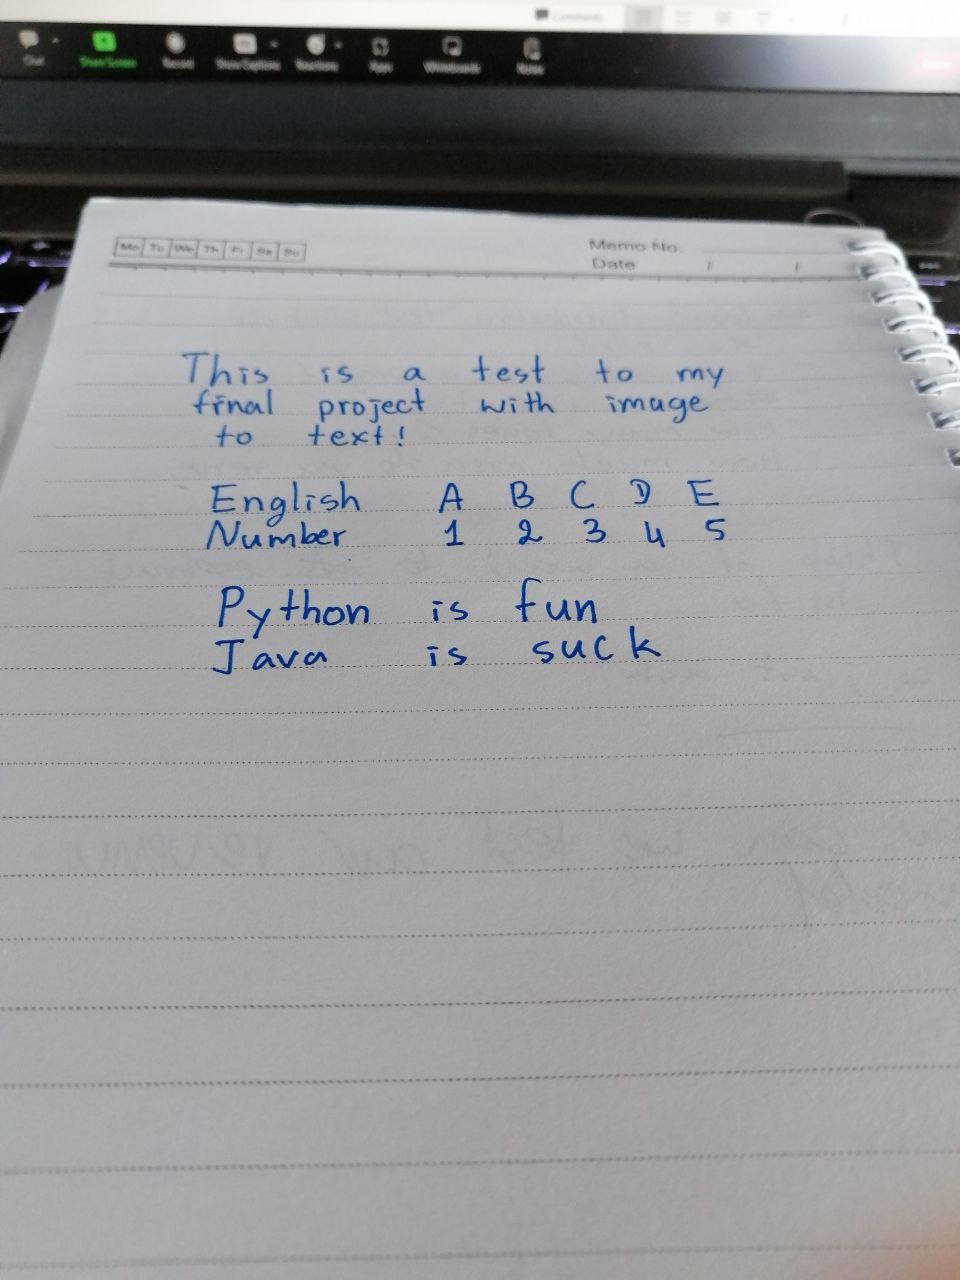 Chat Share Screen Record Show Captions Reactions Apps Whiteboards Notes
Mo Tu We Th Fr Sa Su
Memo No.
Date / /
This is a test to my
final project with image
to text!
English A B C D E
Number 1 2 3 4 5
Python is fun
Java is suck